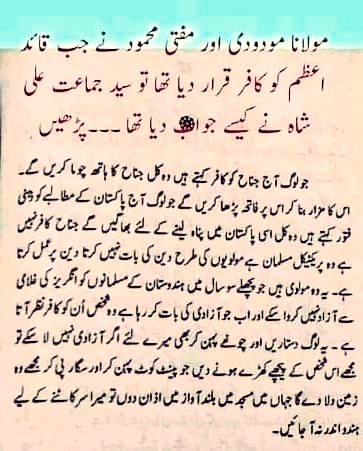 مولانا مودودی اور مفتی محمود نے جب قائد
اعظم کو کافر قرار دیا تھا تو سید جماعت علی
شاہ نے کیسے جواب دیا تھا ---پڑھیں
جو لوگ آج جناح کو کافر کہتے ہیں وہ کل جناح کا ہاتھ چوما کریں گے۔
اس کا مزار بنا کر اس پر فاتحہ پڑھا کریں گے جو لوگ آج پاکستان کے مطالبے کو ذہنی
فتور کہتے ہیں وہ کل اسی پاکستان میں پناہ لینے کے لئے بھاگیں گے جناح کافر نہیں
ہے وہ پریکٹیکل مسلمان ہے مولویوں کی طرح دین کی بات نہیں کرتا دین پر عمل کرتا
ہے۔ یہ وہ مولوی ہیں جو پچھلے سو سال میں ہندوستان کے مسلمانوں کو انگریز کی غلامی
سے آزاد نہیں کروا سکے اور اب جو آزادی کی بات کر رہا ہے وہ شخص اُن کو کافر نظر آتا
ہے۔ یہ لوگ دستاریں اور چوغے پہن کر بھی میرے لئے اگر آزادی نہیں لا سکے تو
مجھے اس شخص کے پیچھے کھڑے ہونے دیں جو پینٹ کوٹ پہن کر اور سگار پی کر مجھے وہ
زمین دلا دے گا جہاں میں مسجد میں بلند آواز میں اذان دوں تو میرا سر کاٹنے کے لیے
ہندو اندر نہ آ جائیں۔